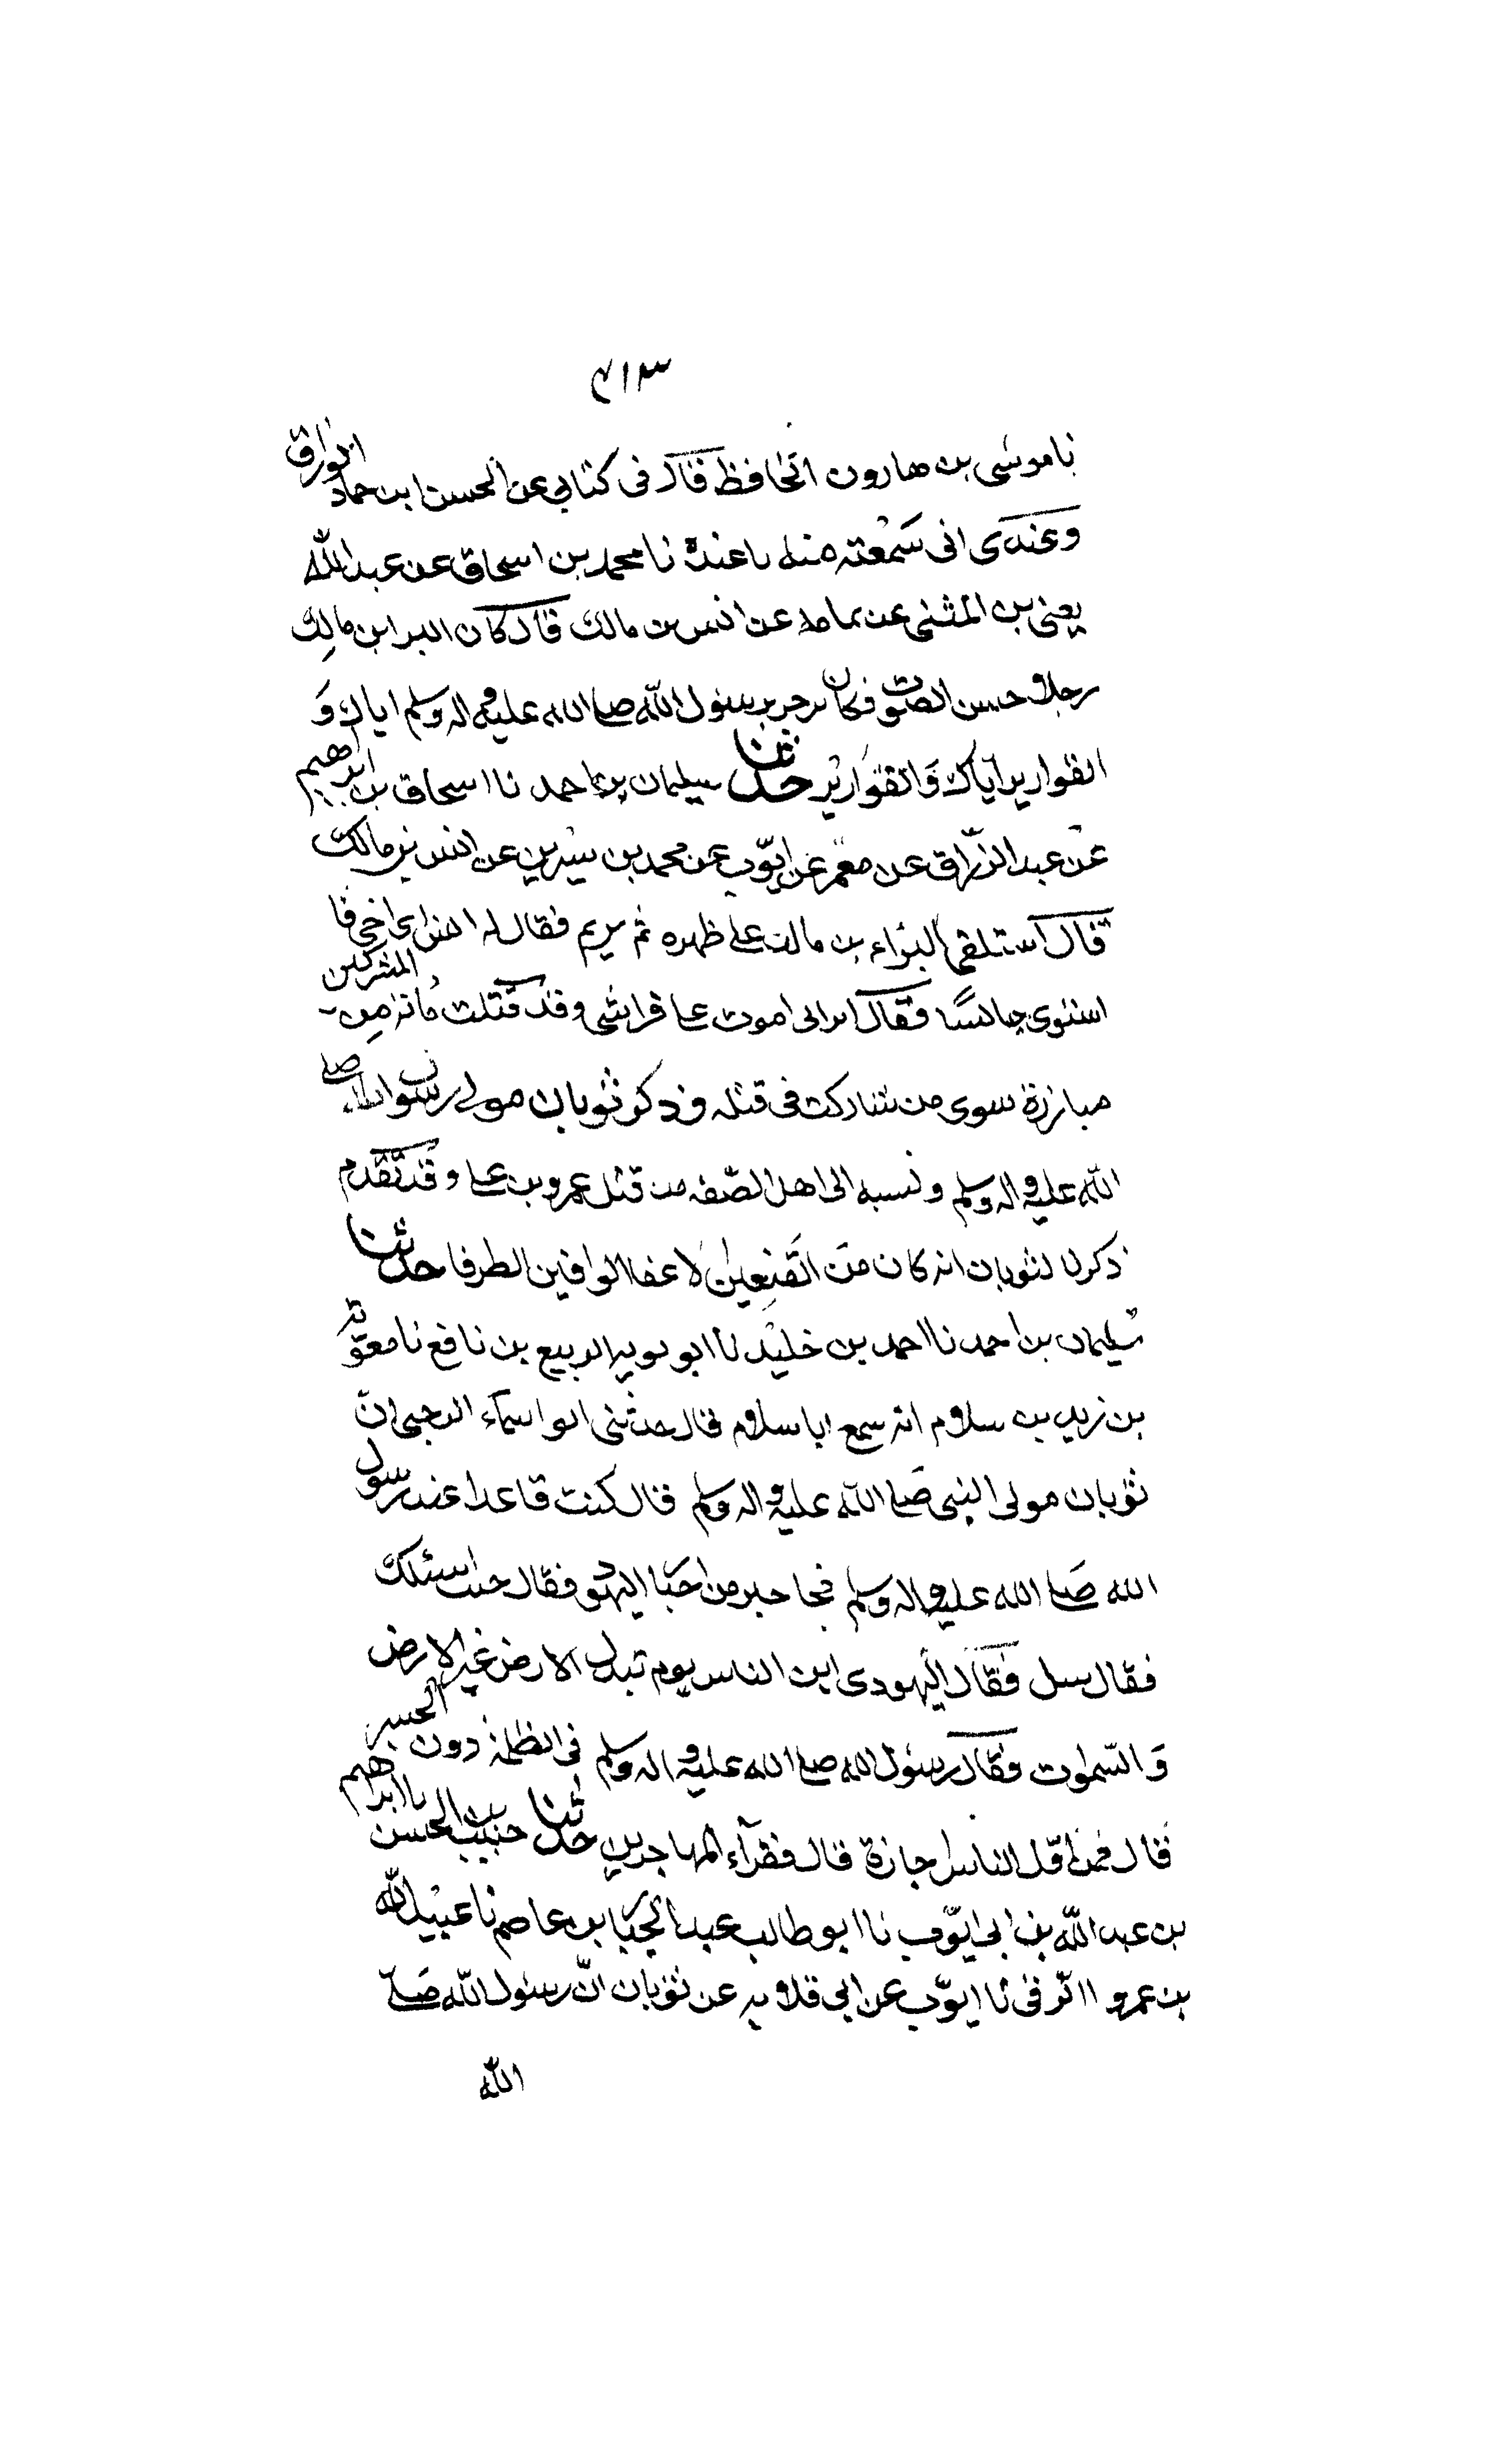 ٤١٣
نا موسى بن هارون الحافظ قال فى كتابى عن الحسن ابن حماد الوراق
وعندى انى سمعته منه نا عبدة نا محمد بن اسحاق عن عبد الله
يعنى بن المثنى عن ثمامه عن انس بن مالك قال كان البرا بن مالك
رجلا حسن الصوت فكان يرجز برسول الله صلى الله عليه واله وسلم اياك و
القوارير اياك والقوارير حدثنا سليمان بن احمد نا اسحاق بن ابرهيم
عن عبد الرزاق عن معمر عن ايوب عن محمد بن سيرين عن انس بن مالك
قال استلقى البراء بن مالك على ظهره ثم فقال له انس اى اخى فا
استوى جالسا فقال انى اموت على فراشى وقد قتلت مائة من المشركين
مبارزة سوى من شاركت فى قتله وذكر ثوبان مولى رسول الله صلى
الله عليه واله وسلم ونسبه الى اهل الصفه من قبل عمرو بن على وقد تقدم
ذكرنا لثوبان انه كان من القنعين الاعفا الوافين الظرفا حدثنا
سليمان بن احمد نا احمد بن خليد نا ابو توبه الربيع بن نافع نا معوية
بن زيد بن سلام انه سمع ابا سلام قال حدثنى ابو اسماء الرحبى ان
ثوبان مولى النبى صلى الله عليه واله وسلم قال كنت قاعدا عند رسول
الله صلى الله عليه واله وسلم فجا حبر من احبار اليهود فقال جئت اسئلك
فقال سل فقال اليهودى اين الناس يوم تبدل الارض غير الارض
والسموت فقال رسول الله صلى الله عليه واله وسلم فى الظلمة دون الجسر
قال فمن اول الناس اجازة قال فقراء المهاجرين حدثنا حبيب بن الحسن نا ابراهيم
بن عبد الله بن ابى ايوب نا ابو طالب عبد الجبار بن عاصم نا عبيد الله
بن عمرو الرقى نا ايوب عن ابى قلابه عن ثوبان ان رسول الله صلى
الله